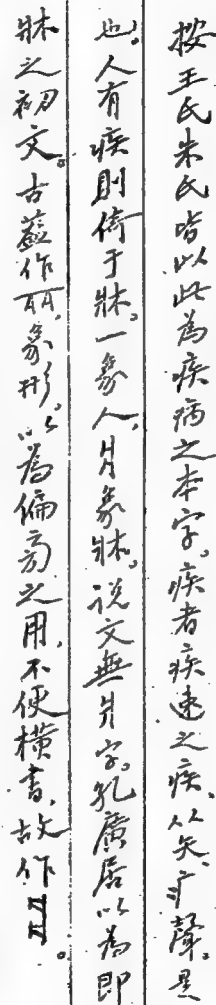 按王氏朱氏皆以此為疾病之本字。疾者疾速之疾、从矢、疒聲。是
也。人有疾則倚于牀。一象人、爿象牀。说文無爿字。孔廣居以為即
牀之初文。古蓋作𠀃、象形。以為偏旁之用、不便横書、故作爿。